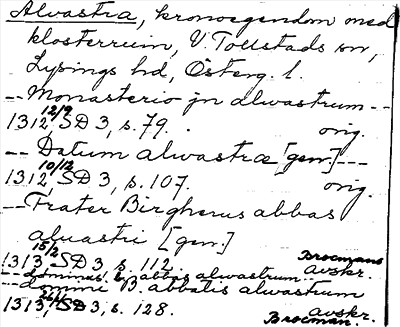 Alvastra, kronoegendom med
klosterruin, V. Tollstads sn,
Lysings hd, Österg. l.
-- Monasterio jn alwastrum --
1312 12/9, SD 3, s. 79. orig.
-- Datum alwastræ [gen.] ---
1312 10/12, SD 3, s. 107. orig.
-- Frater Birgherus abbas
aluastri [gen.]
1313 15/2, SD 3, s. 112. Brocmans avskr.
-- dominus b. abbas alwastrum --
-- domini B. abbatis alwastrum
1313, SD 3, s. 128. Brocman. avskr.